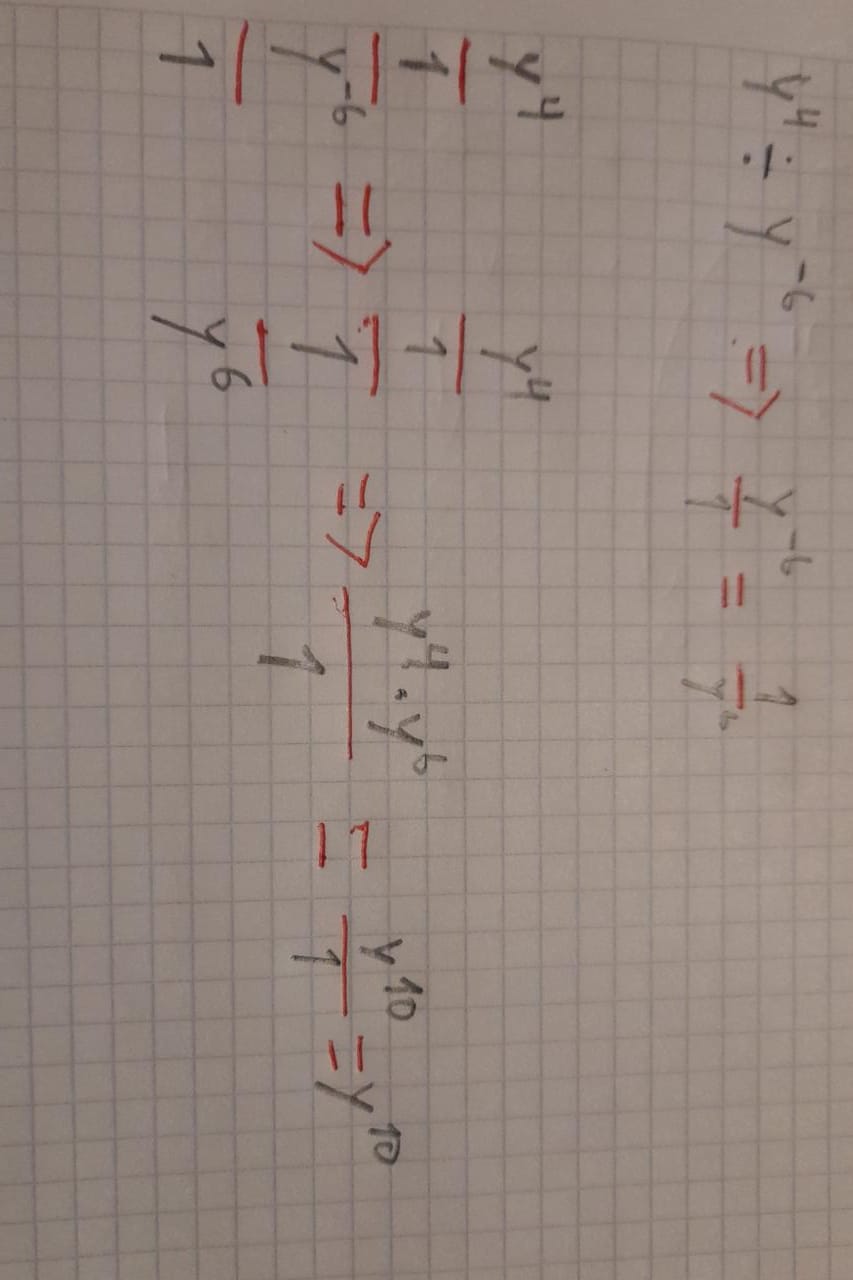 y⁴ ÷ y⁻⁶ => y⁻⁶/1 = 1/y⁶
(y⁴/1)/(y⁻⁶/1) => (y⁴/1)/(1/y⁶) => (y⁴·y⁶)/1 = y¹⁰/1 = y¹⁰